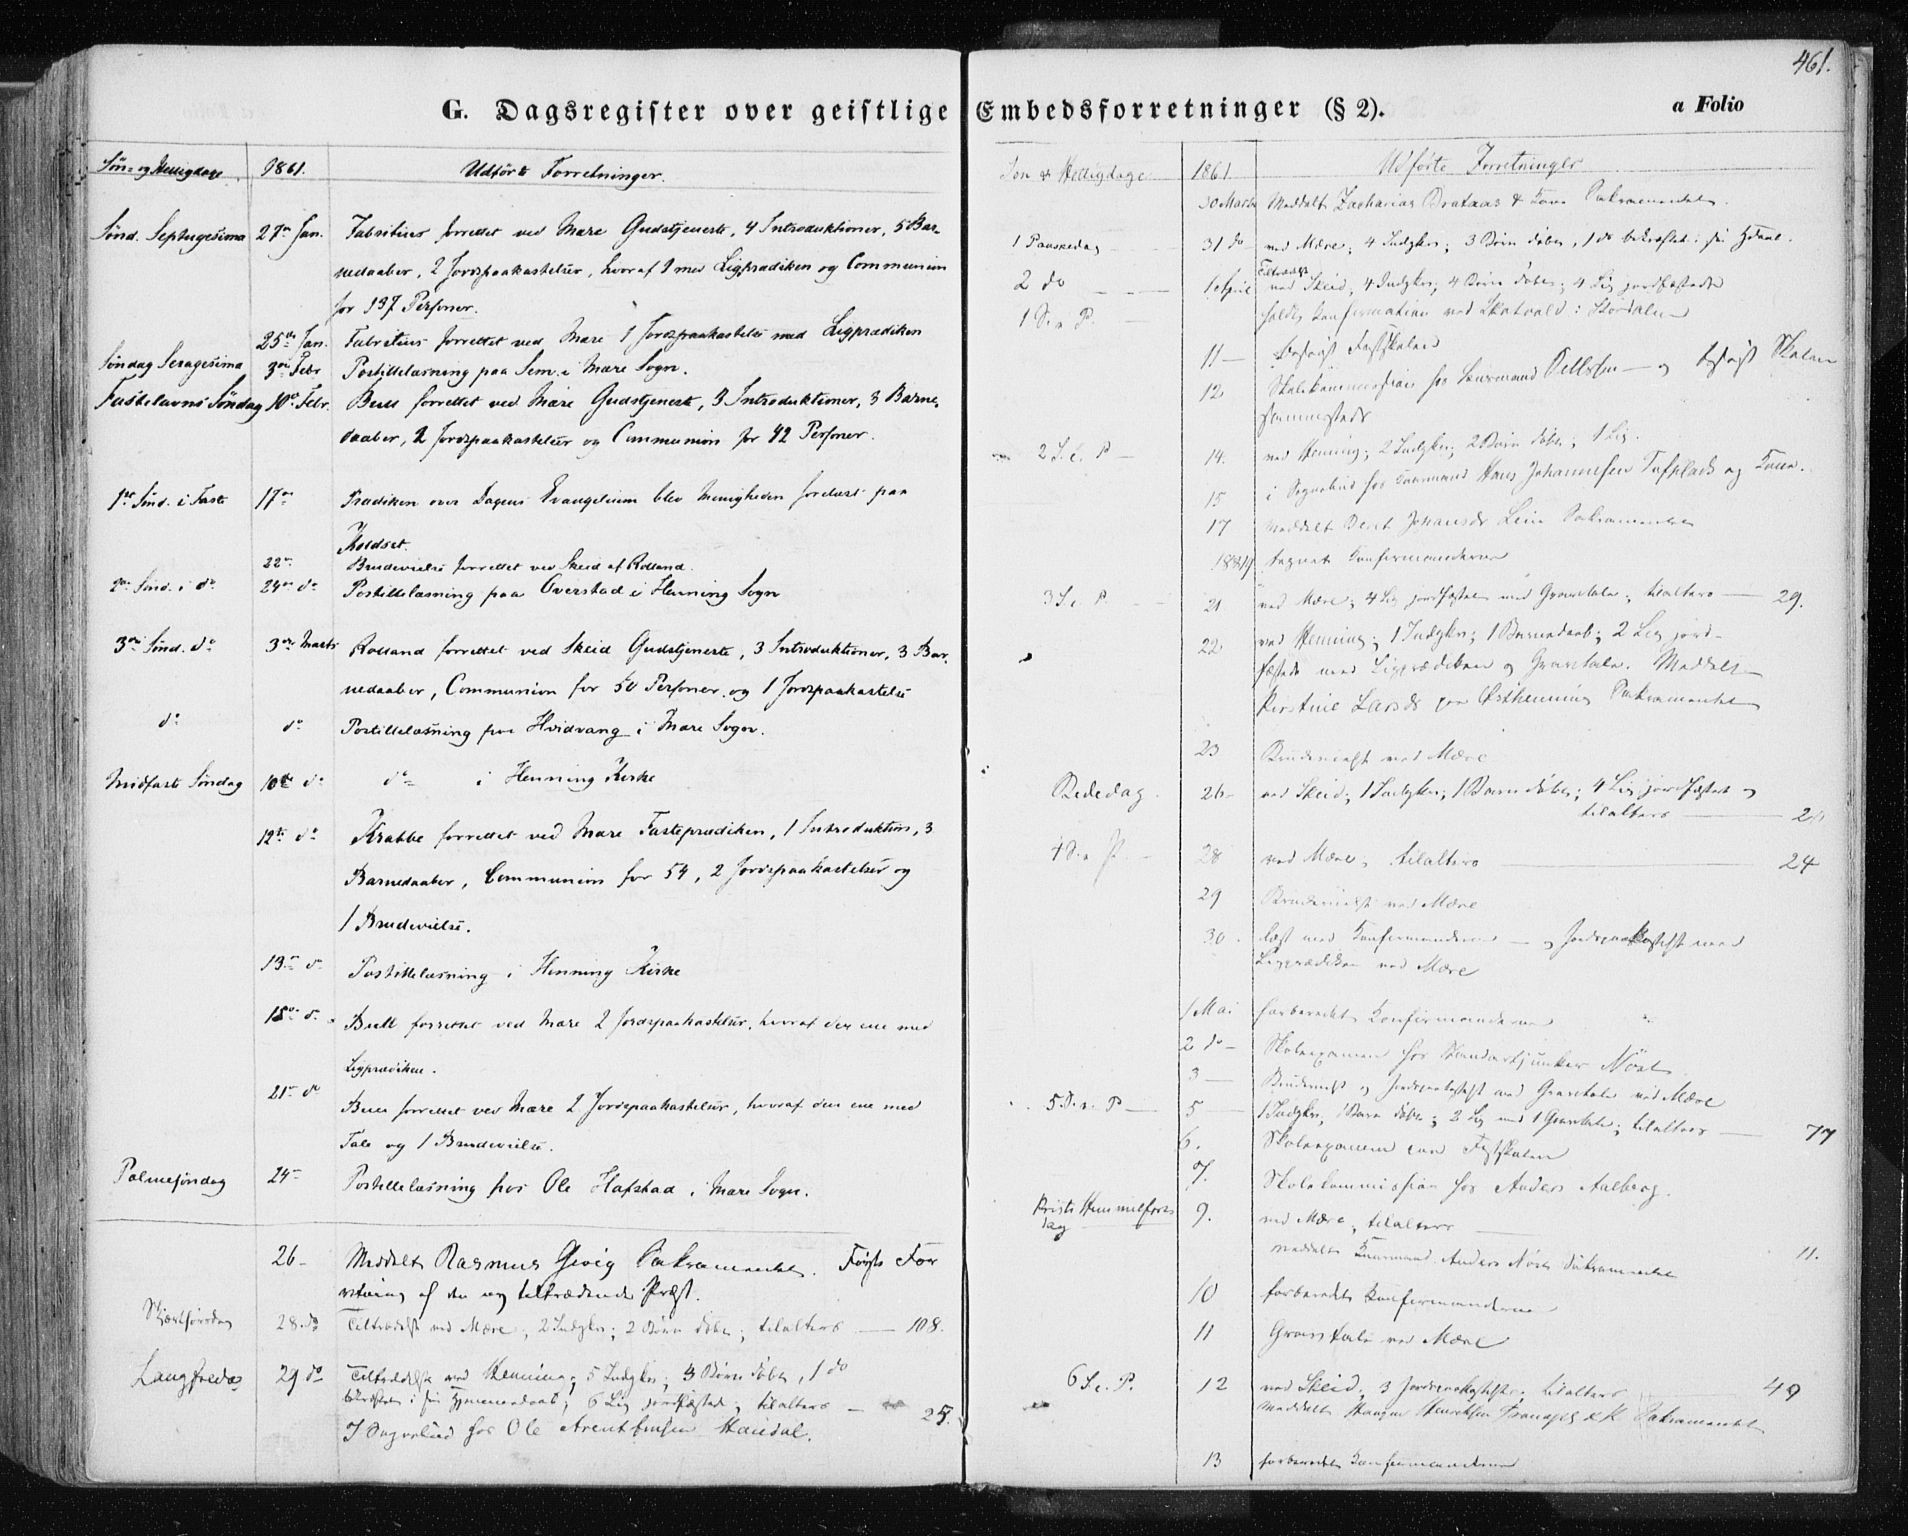 461.
G. Dagsregister over geistlige Embedsforretninger (§ 2).
a Folio
Søn- og Helligdage. 1861. Udførte Forretninger.
Sønd. Septugesima 27de Jan. Fabritius forrettet ved Mære Gudstjeneste, 4 Introduktioner, 5 Bar-
nedaaber, 2 Jordspaakastelser, hvoraf 1 med Ligprædiken og Communion
for 137 Personer.
25de Jan. Fabritius forrettet ved Mære 1 Jordspaakastelse med Ligprædiken
Søndag Sexagesima 3die Febr Postillelæsning paa Sem i Mære Sogn.
Fastelavns Søndag 10de Febr. Bull forrettet ved Mære Gudstjeneste, 3 Introduktioner, 3 Barne-
daaber, 2 Jordspaakastelser og Communion for 42 Personer.
1ste Sønd. i Faste 17de Prædiken over Dagens Evangelium blev Menigheden forelæst paa
Koldset.
22de Brudevielse forrettet ved Skeid af Rolland.
2den Sønd. i do 24de do Postillelæsning paa Overstad i Henning Sogn
3die Sønd. do 3die Marts Rolland forrettet ved Skeid Gudstjeneste, 3 Introduktioner, 3 Bar-
nedaaber, Communion for 50 Personer og 1 Jordspaakastelse
do do Postillelæsning paa Hvidvang i Mære Sogn.
Midfaste Søndag 10de do do i Henning Kirke
12te do Krabbe forrettet ved Mære Fasteprædiken, 1 Introduktion, 3
Barnedaaber, Communion for 54, 2 Jordspaakastelser og
1 Brudevielse.
13de do Postillelæsning i Henning Kirke
15de do Bull forrettet ved Mære 2 Jordspaakastelser, hvoraf den ene med
Ligprædiken.
21de do Bull forrettet ved Mære 2 Jordspaakastelser, hvoraf den ene med
Tale og 1 Brudevielse.
Palmesøndag 24de Postillelæsning hos Ole Hafstad i Mære Sogn.
26 Meddelt Rasmus Sakramentet. Første For
retning af den ny tiltrædende Præst.
Skjærthorsdag 28. do Tiltrædelse ved Mære, 2 Indgkr; 2 Børn døbte; tilalters 108.
Langfredag 29 do Tiltrædelse ved Henning; 5 Indgkr; 3 Børn døbte, 1 do
bekræftet i sin Hjemmedaab; 6 Lig jordfæstede; tilalters 25.
I Sognebud hos Ole Arentsen
Søn & Helligdage 1861 Udførte Forretninger
30 Marts Meddelt Zacharias & Kone Sakramentet.
1 Paaskedag 31 do ved Mære; 4 Indgkr; 3 Børn døbte, 1 do bekræftet i sin Hjdaab.
2 do 1 April Tiltrædelse ved Skeid, 4 Indgkr; 4 Børn døbte; 4 Lig jordfæstede
1 S. e. P. holdt Konfirmation ved Skatvold i Stördalen
11 Besøgt Fastskolen
12 Skolekommission hos Lensmand og besøgt Skolen
sammesteds
2 S. e. P 14. ved Henning; 2 Indgkr; 2 Børn døbte; 1 Lig.
15 i Sognebud hos Gaarmand Hans Johannesen og Kone.
17 Meddelt Beret Johansdr Sakramentet
18 & 19 tegnet Konfirmanderne
3 S. e. P 21 ved Mære; 4 Lig jordfæstede med Gravtale; tilalters 29.
22 ved Henning; 1 Indgkr; 1 Barnedaab; 2 Lig jord-
fæstede med Ligprædiken og Gravtale. Meddelt
Kirstine Larsdr paa Østhenning Sakramentet
23 Brudevielse ved Mære
Bededag 26 ved Skeid; 1 Indgkr; 1 Barn døbt; 4 Lig jordfæstet og
tilalters
4 S. e. P. 28 ved Mære, tilalters 24
29 Brudevielse ved Mære
30. læst med Konfirmanderne og Jordspaakastelse med
Ligprædiken ved Mære
1 Mai forberedt Konfirmanderne
2 do Skoleexamen hos Standartjunker Nöst
3 Brudevielse og Jordspaakastelse med Gravtale ved Mære
5 S. e. P 5 1 Indgkr, 1 Barn døbt; 2 Lig med 1 Gravtale; tilalters 77
6. Skoleexamen paa Fastskolen
7. Skolekommission hos Anders Aalberg.
Kristi Himmelfarts
dag 9. ved Mære, tilalters
Meddelt Gaarmand Anders Nöst Sakramentet 11.
10 forberedt Konfirmanderne
11 Gravtale ved Mære
6 S. e. P. 12 ved Skeid, 3 Jordspaakastelser; tilalters 49
Meddelt Henriksen Sakramentet
13 forberedt Konfirmanderne